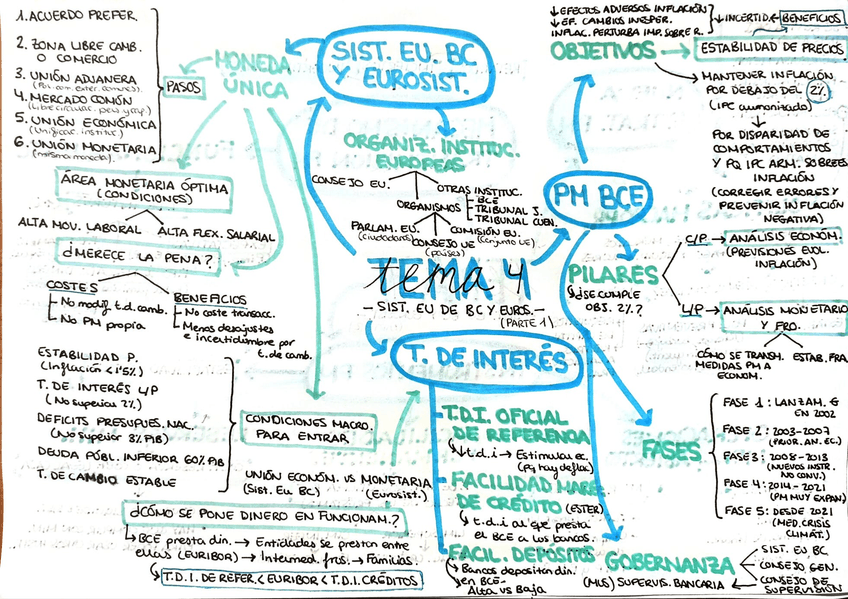 1. ACUERDO PREFER.
2. ZONA LIBRE CAMB.
O COMERCIO
3. UNIÓN ADUANERA
(Pol. com. exter. comunes)
4. MERCADO COMÚN
5. UNIÓN ECONÓMICA
(Unificac. instituc.)
6. UNIÓN MONETARIA
(misma moneda)
PASOS
MONEDA
ÚNICA
SIST. EU. BC
Y EUROSIST.
ORGANIZ. INSTITUC.
EUROPEAS
CONSEJO EU.
OTRAS INSTITUC.
BCE
TRIBUNAL J.
TRIBUNAL CUEN.
ORGANISMOS
PARLAM. EU.
(ciudadanos)
CONSEJO UE
(países)
COMISIÓN EU.
(conjunto UE)
↓ EFECTOS ADVERSOS INFLAÇIÓN
↓ EF. CAMBIOS INESPER.
INFLAC. PERTURBA IMP. SOBRE R.
↓ INCERTID.
BENEFICIOS
OBJETIVOS → ESTABILIDAD DE PRECIOS
MANTENER INFLACIÓN
POR DEBAJO DEL 2%
(IPC armonizado)
POR DISPARIDAD DE
COMPORTAMIENTOS
Y PQ IPC ARM. SOBREES
INFLACIÓN
(CORREGIR ERRORES Y
PREVENIR INFLACIÓN
NEGATIVA)
PM BCE
PILARES
¿SE CUMPLE
OBJ. 2%?
C/P → ANÁLISIS ECONÓM.
(PREVISIONES EVOL.
INFLACIÓN)
L/P → ANÁLISIS MONETARIO
Y FRO.
CÓMO SE TRANSM.
MEDIDAS PM A
ECONOM.
ESTAB. FRA
ÁREA MONETARIA ÓPTIMA
(CONDICIONES)
ALTA MOV. LABORAL
ALTA FLEX. SALARIAL
¿MERECE LA PENA?
COSTES
No modif. t.d. camb.
No PM propia
BENEFICIOS
No coste transacc.
Menos desajustes
e incertidumbre por
t. de camb.
TEMA 4
tema 4
— SIST. EU DE BC Y EUROS. —
(PARTE 1)
T. DE INTERÉS
ESTABILIDAD P.
(Inflación < 1'5%)
T. DE INTERÉS L/P
(No superior 2%)
DEFICITS PRESUPUES. NAC.
(No superior 3% PIB)
DEUDA PÚBL. INFERIOR 60% PIB
T. DE CAMBIO ESTABLE
CONDICIONES MACRO.
PARA ENTRAR
UNIÓN ECONÓM. VS MONETARIA
(Sist. Eu BC) (Eurosist.)
¿CÓMO SE PONE DINERO EN FUNCIONAM.?
BCE presta din. → Entidades se prestan entre
ellas (EURIBOR) → Intermed. fros. → Familias.
T.D.I. DE REFER. < EURIBOR < T.D.I. CRÉDITOS
T.D.I. OFICIAL
DE REFERENCIA
↓ t.d.i → Estimular ec.
(Pq hay deflac)
FACILIDAD MARG.
DE CRÉDITO (ESTER)
t.d.i al que presta
el BCE a los bancos.
FACIL. DEPÓSITOS
Bancos depositan din.
en BCE.
Alta vs Baja
FASES
FASE 1: LANZAM. €
EN 2002
FASE 2: 2003-2007
(PRIOR. AN. EC.)
FASE 3: 2008-2013
(NUEVOS INSTR.
NO CONV.)
FASE 4: 2014-2021
(PM MUY EXPAN)
FASE 5: DESDE 2021
(MED. CRISIS
CLIMÁT.)
GOBERNANZA
SIST. EU BC
CONSEJO GEN.
CONSEJO DE
SUPERVISIÓN
(MUS) SUPERVIS. BANCARIA